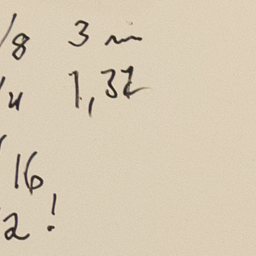 /8 3 m
/4 1,32
16
2!